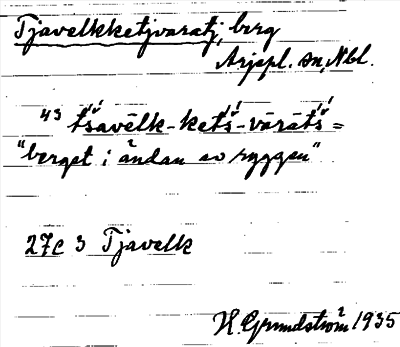 Tjavelkketjvaratj, berg
Arjepl. sn, Nbl.
43 t́šavēlk-ket́š-vārāt́š =
"berget i ändan av ryggen"
27c 3 Tjavelk
H. Grundström 1935